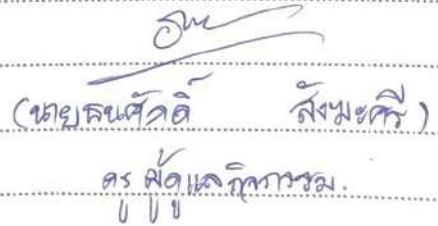 (นายธนศักดิ์ สังฆะศรี)
ครู ผู้ดูแลกิจกรรม.